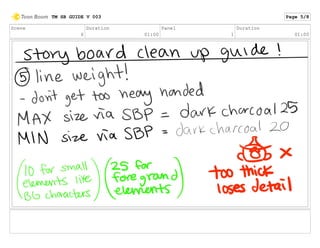 Toon Boom TM SB GUIDE V 003 Page 5/8
Scene Duration Panel Duration
6 01:00 1 01:00
story board clean up guide!
⑤ line weight!
- don't get too heavy handed
MAX size via SBP = dark charcoal 25
MIN size via SBP = dark charcoal 20
(10 for small elements like BG characters)
(25 for foreground elements)
X
too thick
loses detail